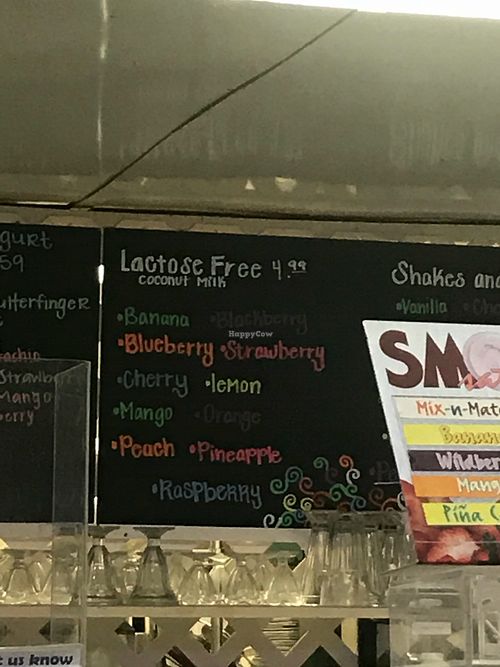 gurt
59
utterfinger
Strawb
Mango
erry
Lactose Free 4.99
coconut milk
•Banana •Blackberry
•Blueberry •Strawberry
•Cherry •lemon
•Mango •Orange
•Peach •Pineapple
•Raspberry
HappyCow
Shakes and
•Vanilla •Ch
SM
Mix-n-Matc
Banan
Wildber
Mang
Piña C
t us know